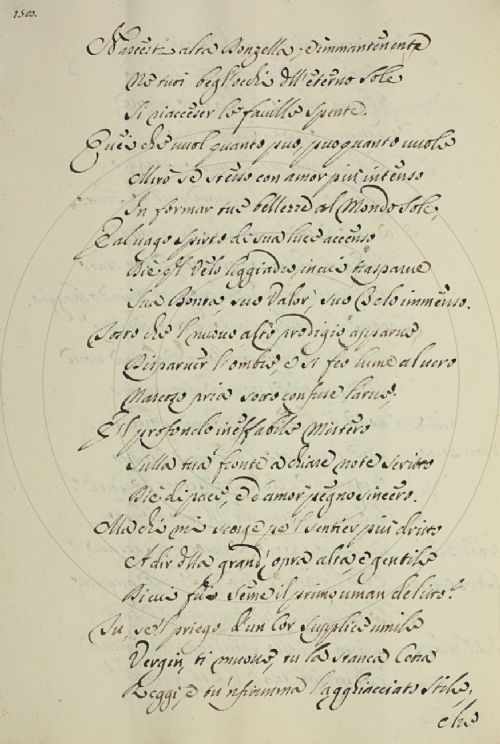 1503.
Nascesti alta Donzella, e immantenente
Ne tuoi begl'occhi dell'eterno Sole
Si riacceser le faville spente.
E quei che vuol quanto può, può quanto vuole
Mirò se stesso con amor più intenso
In formar tue bellezze al Mondo sole,
E al vago spirto di sua luce accenso
Diè q.l velo leggiadro, in cui traspare
Sua Bontà, suo Valor, suo Cielo immenso.
Tosto che 'l nuovo alto prodigio apparve
Disparver l'ombre, e si feo lume al vero
Nascoso pria sotto confuse larve;
E il profondo ineffabile Mistero
Sulla tua fronte a chiare note scritto
Diè di pace, e d'amor pegno sincero.
Ma chi mi scorge pe 'l sentier più dritto
A dir della grand'opra alta, e gentile
Di cui fue seme il primo uman delitto?
Tu, se 'l priego d'un Cor supplice umile
Vergin, ti muove, tu la stanca Cetra
Reggi, e tu 'nfiamma l'agghiacciato stile,
che